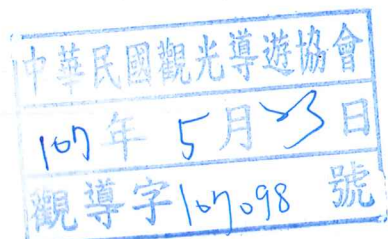 中華民國觀光導遊協會
107年5月23日
觀導字107098號